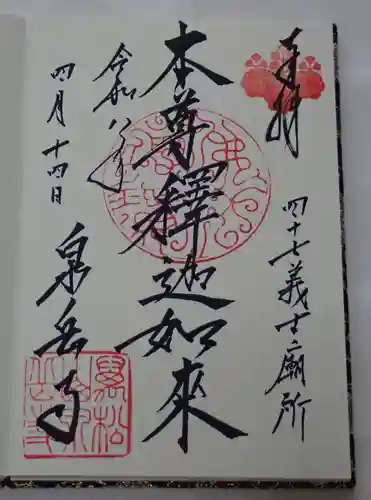 奉拝
四十七義士廟所
本尊釋迦如來
令和八年
四月十四日
泉岳寺